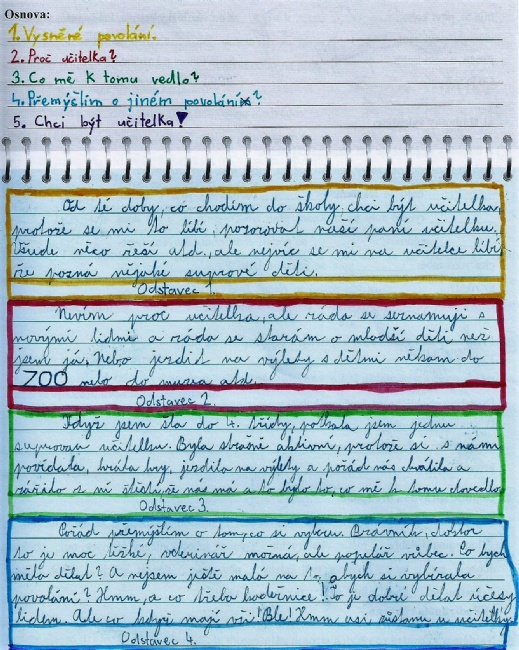 Osnova:
1. Vysněné povolání.
2. Proč učitelka?
3. Co mě k tomu vedlo?
4. Přemýšlím o jiném povolání?
5. Chci být učitelka!
Od té doby, co chodím do školy, chci být učitelka,
protože se mi to líbí, pozorovat naší paní učitelku.
Všude něco řeší atd., ale nejvíc se mi na učitelce líbí,
že pozná nějaké suprové děti.
Odstavec 1.
Nevím proč učitelka, ale ráda se seznamuji s
novými lidmi a ráda se starám o mladší děti než
jsem já. Nebo jezdit na výlety s dětmi někam do
ZOO nebo do muzea atd.
Odstavec 2.
Když jsem šla do 4. třídy, potkala jsem jednu
suprovou učitelku. Byla strašně aktivní, protože si s námi
povídala, hrála hry, jezdila na výlety a pořád nás chválila a
zářilo z ní štěstí, že nás má a to bylo to, co mě k tomu dovedlo.
Odstavec 3.
Pořád přemýšlím o tom, co si vyberu. Právník, doktor
to je moc těžké, veterinář možná, ale popelář vůbec. Co bych
měla dělat? A nejsem ještě malá na to, abych si vybírala
povolání? Hmm, a co třeba kadeřnice! To je dobré dělat účesy
lidem. Ale co když mají vši! Ble! Hmm asi zůstanu u učitelky.
Odstavec 4.